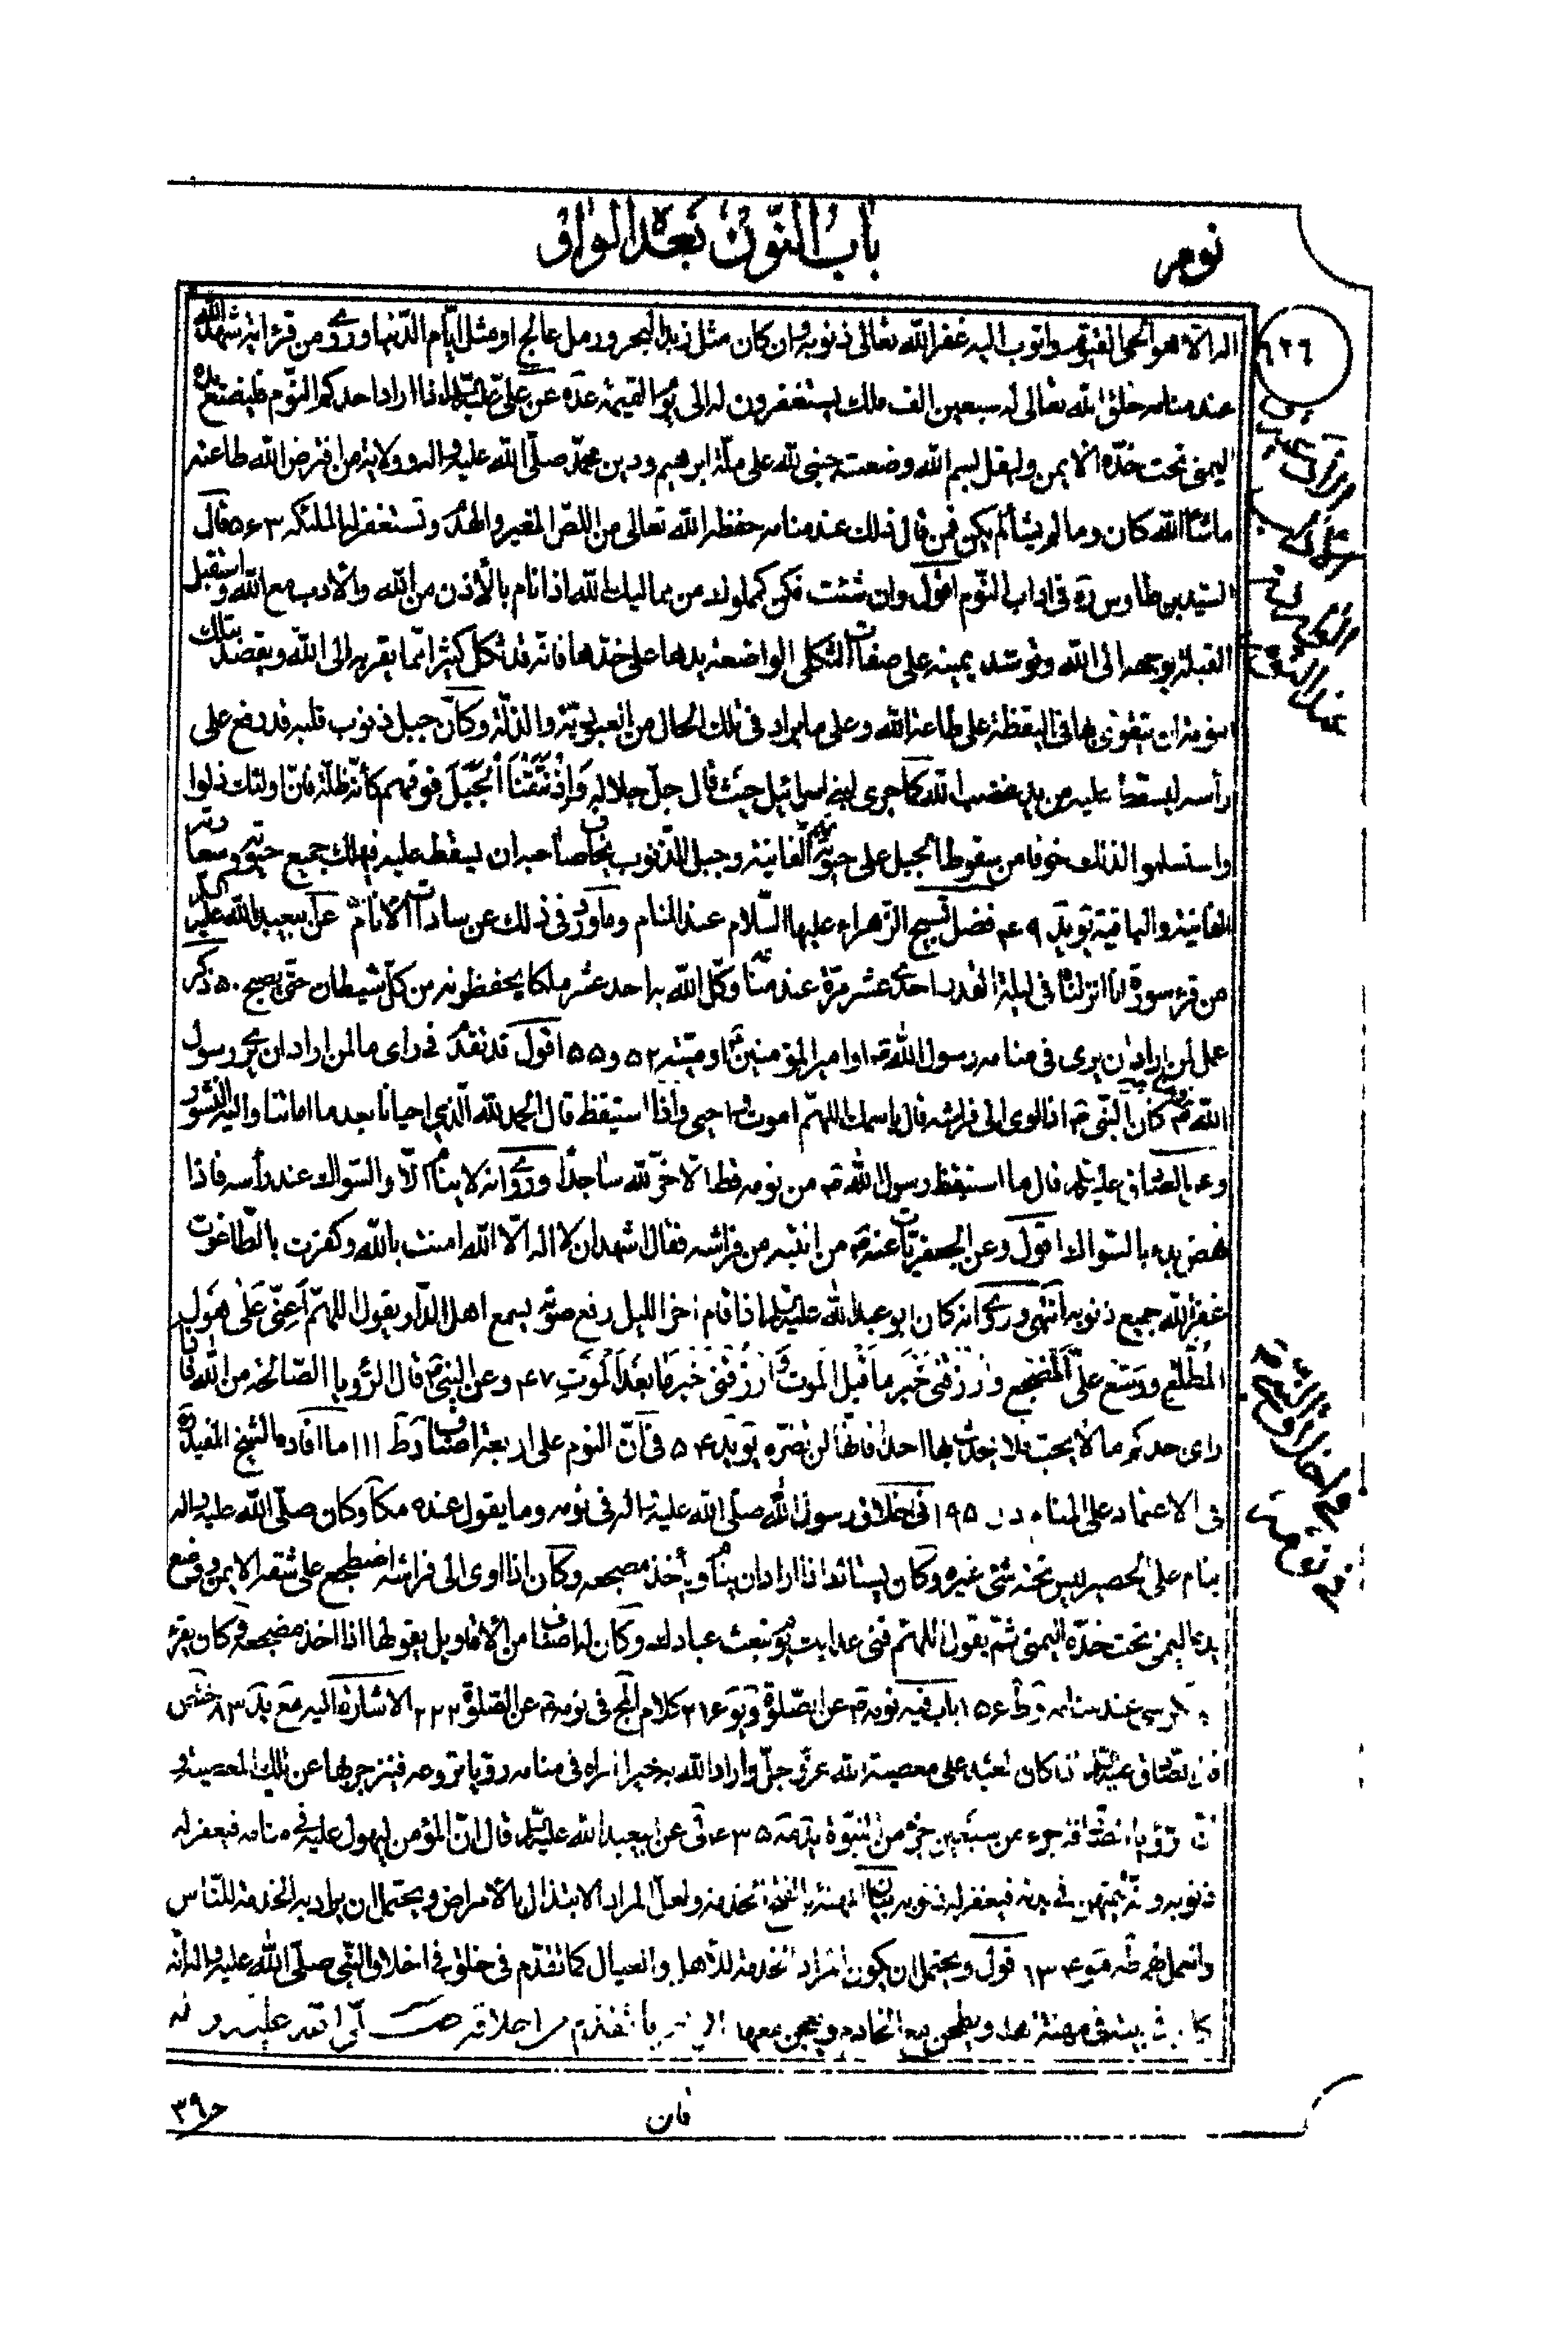 نوم
باب النّون بعده الواو
٦٢٦
اله الّا هو الحیّ القیّوم واتوب الیه غفر الله تعالی ذنوبه وان کان مثل زبد البحر ورمل عالج او مثل ایّام الدّنیا وروی من قرء ایة شهد الله
عند منامه خلق الله تعالی له سبعین الف ملک یستغفرون له الی یوم القیمة عده عن علی علیه السلام اذا اراد احدکم النّوم فلیضع یده
الیمنی تحت خدّه الایمن ولیقل بسم الله وضعت جنبی لله علی ملّة ابرهیم ودین محمّد صلّی الله علیه واله وولایة من افترض الله طاعته
ماشاء الله کان وما لم یشأ لم یکن فمن قال ذلک عند منامه حفظه الله تعالی من اللصّ المغیر والهدم وتستغفر له الملئکه ۵۶۳ قال
السّید بن طاوس ره فی اداب النّوم اقول وان شئت فکن کمملوک من ممالیک الله اذا نام بالأذن من الله والأدب مع الله واستقبل
القبلة بوجهه الی الله وتوسّد یمینه علی صفات الثکلی الواضعة یدها علی خدّها فانّه قد ثکل کثیرا ممّا یقربه الی الله ویقصد بتلک
النومة ان یتقوی بها فی الیقظة علی طاعة الله وعلی ما یراد فی تلک الحال من العبودیّة والذلّة وکأنّ جبل ذنوب قلبه قد رفع علی
رأسه لیسقط علیه من ید غضب الله کما جری لبنی اسرائیل حیث قال جلّ جلاله وَاِذْ نَتَقْنَا الْجَبَلَ فوقهم کأنّه ظلّة فانّ اولئک ذلوا
واستسلموا لذلک خوفا من سقوط الجبل علی حیوتهم الفانیة وجبل الذنوب یخاف صاحبه ان یسقط علیه فیهلک جمیع حیوته وسعادته
الفانیة والباقیة ۴۹ فضل تسبیح الزهراء علیها السّلام عند المنام وما ورد فی ذلک عن سادات الانام عن ابیعبد الله علیه السلام
من قرء سورة انا انزلناه فی لیلة القدر احدی عشر مرّة عند منامه وکّل الله به احد عشر ملکا یحفظونه من کلّ شیطان حتّی یصبح ۵۰ ذکر
عمل لمن اراد ان یری فی منامه رسول الله او امیر المؤمنین او میّته ۵۲ و ۵۵ اقول قد تقدّم فی رای ما لمن اراد ان یری رسول
الله کان النّبی اذا اوی الی فراشه قال باسمک اللهمّ اموت واحیی واذا استیقظ قال الحمد لله الّذی احیانا بعد ما اماتنا والیه النشور
وعن الصّادق علیه السلام قال ما استیقظ رسول الله من نومه قط الّا خرّ لله ساجدًا وروی انه لا ینام الّا والسّواک عند رأسه فاذا
نهض بدء بالسّواک اقول وعن الجعفریات عنه من انتبه من فراشه فقال اشهد ان لا اله الّا الله امنت بالله وکفرت بالطّاغوت
غفر الله جمیع ذنوبه انتهی وروی انه کان ابو عبد الله علیه السلام اذا قام اخر اللیل رفع صوته یسمع اهل الدّار ویقول اللهمّ اَعِنّی عَلی هَول
المُطّلع ووسّع علیّ المضجع وارزقنی خیر ما قَبل الموت وارزقنی خیر ما بعد الموت ۴۷ وعن النبیّ قال الرّؤیا الصّالحة من الله فاذا
رای احدکم ما لا یحب فلا یحدّث بها احدا فانّها لن تضرّه ۵۴ فی انّ النوم علی اربعة اصناف ۱۱۱ ما افاده الشیخ المفید ره
فی الاعتماد علی المنام ۱۹۵ فی اخلاق رسول الله صلّی الله علیه واله فی نومه وما یقول عنده مکا وکان صلّی الله علیه واله
ینام علی الحصیر لیس تحته شئ غیره وکان یستاک اذا اراد ان ینام ویأخذ مضجعه وکان اذا اوی الی فراشه اضطجع علی شقه الایمن ووضع
یده الیمنی تحت خدّه الیمنی ثمّ یقول اللهمّ قنی عذابک یوم تبعث عبادک وکان له اصناف من الأقاویل یقولها اذا اخذ مضجعه وکان یقرء
الکرسی عند منامه ۱۵۶ باب فیه نومه عن الصّلوة ۲۱۶ کلام فی نومه عن الصّلوة ۲۲۲ الاشارة الیه ۸۳
الصّادق علیه السلام اذا کان العبد علی معصیة الله عزّ وجلّ واراد الله به خیرا اراه فی منامه رؤیا تروعه فینزجر بها عن تلک المعصیة و
انّ الرّؤیا الصّادقة جزء من سبعین جزء من النّبوّة ۴۳۵ عن ابیعبد الله علیه السلام قال انّ المؤمن لیهول علیه فی منامه فیغفر له
ذنوبه وانّه لیمتهن فی بدنه فیغفر له ذنوبه بیان المهنة بالفتح الخدمة ولعلّ المراد الابتذال بالأمراض ویحتمل ان یراد به الخدمة للنّاس
۱۳۴ اقول ویحتمل ان یکون المراد الخدمة للأهل والعیال کما تقدّم فی خلق فی اخلاق النّبی صلّی الله علیه واله انّه
کان فی بیته فی مهنة اهله ویطحن مع الخادم ویعجن معها
فان
عند النوم
فی نومه